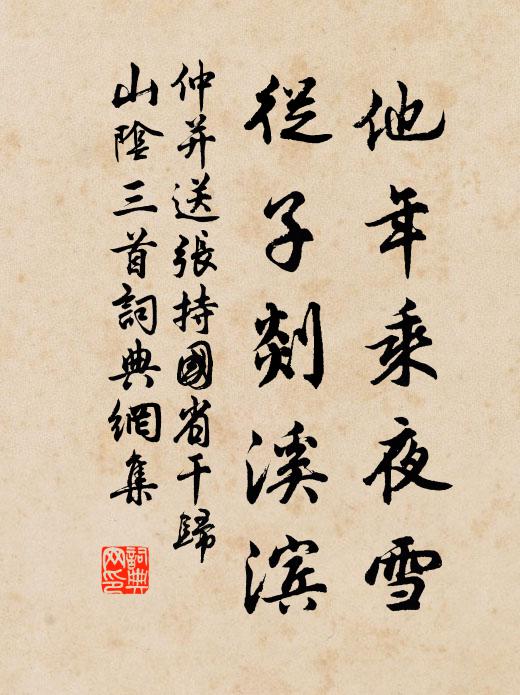 他年乘夜雪
從子剡溪滨
仲并送張持國省干歸
山陰三首詞典網集
詞典
网印